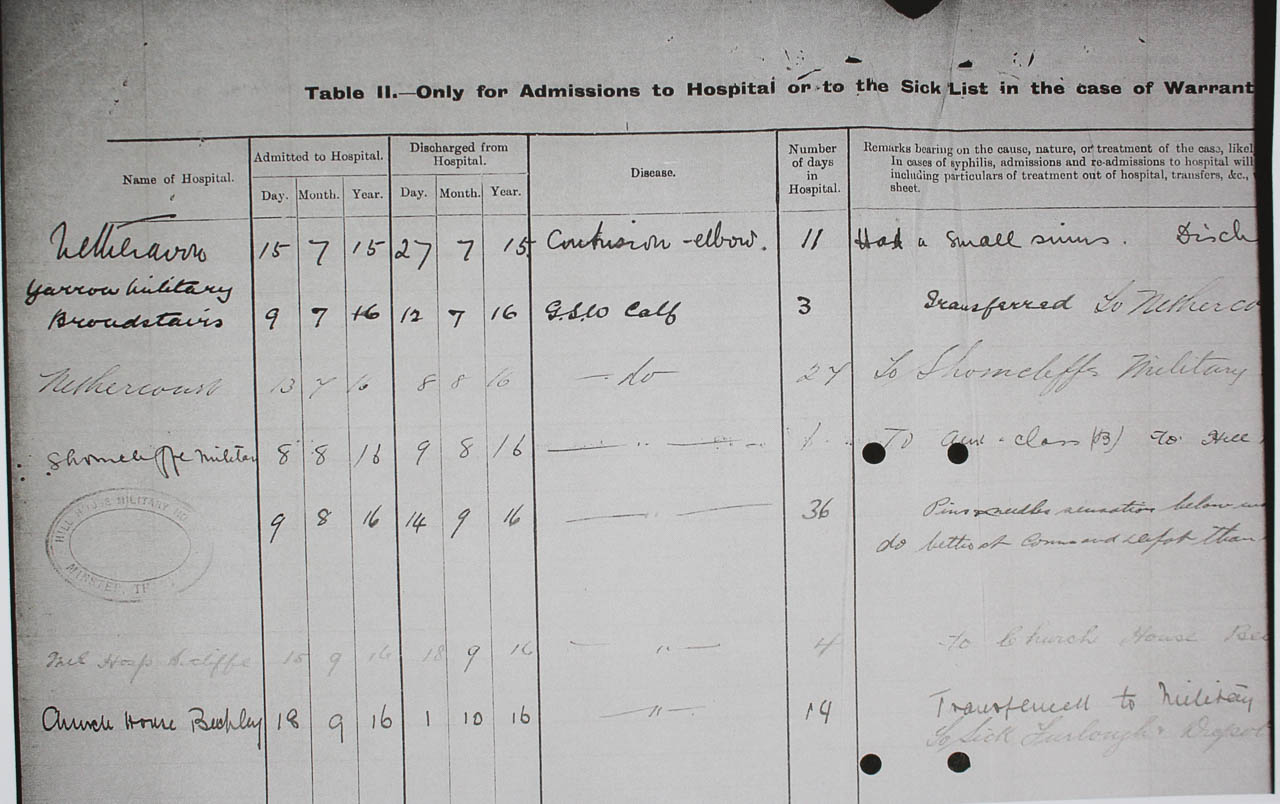 Table II.—Only for Admissions to Hospital or to the Sick List in the case of Warrant
Name of Hospital. Admitted to Hospital. Discharged from Hospital. Disease. Number of days in Hospital. Remarks bearing on the cause, nature, or treatment of the case, likel
In cases of syphilis, admissions and re-admissions to hospital will
including particulars of treatment out of hospital, transfers, &c.,
sheet.
Day. Month. Year. Day. Month. Year.
Netheravon 15 7 15 27 7 15 Contusion - elbow. 11 Had a small sinus. Disch
Yarrow Military
Broadstairs 9 7 16 12 7 16 G.S.W Calf 3 Transferred To Netherco
Nethercourt 13 7 16 8 8 16 — do — 27 To Shorncliffe Military
Shorncliffe Militar 8 8 16 9 8 16 — " — 1 To class (B) to Hill
HILL HOUSE MILITARY HO
MINSTER, TH
9 8 16 14 9 16 — " — 36 Pins needles sensation below
do better at Command Depot than
Mil Hosp 15 9 16 18 9 16 — " — 4 to Church House Bec
Church House Beckley 18 9 16 1 10 16 — " — 14 Transferred to Military
To Sick Furlough & Depot